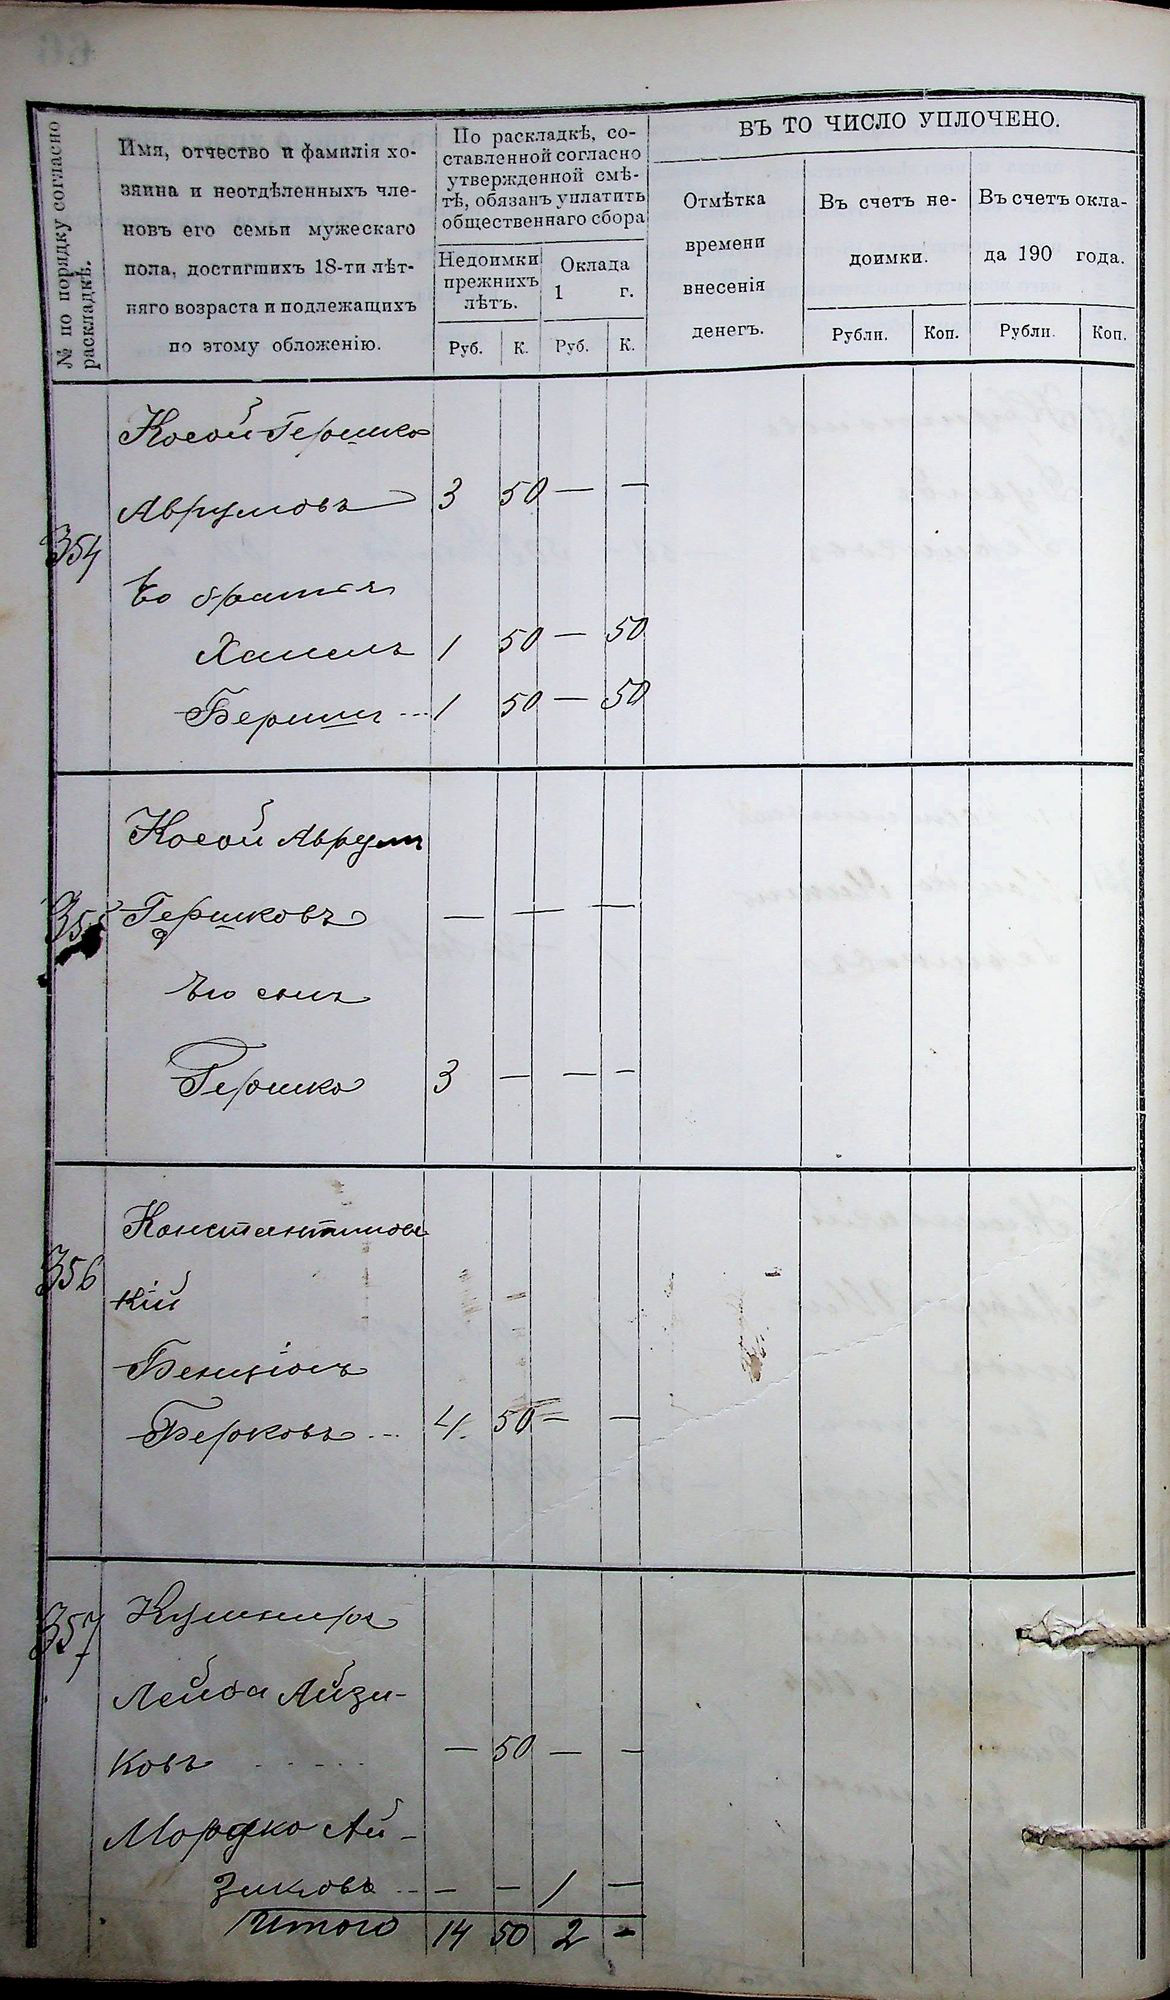 № по порядку согласно
раскладкѣ.
Имя, отчество и фамилія хо-
зяина и неотдѣленныхъ чле-
новъ его семьи мужескаго
пола, достигшихъ 18-ти лѣт-
няго возраста и подлежащихъ
по этому обложенію.
По раскладкѣ, со-
ставленной согласно
утвержденной смѣ-
тѣ, обязанъ уплатить
общественнаго сбора
Недоимки
прежнихъ
лѣтъ.
Оклада
1 г.
Руб. К. Руб. К.
ВЪ ТО ЧИСЛО УПЛОЧЕНО.
Отмѣтка
времени
внесенія
денегъ.
Въ счетъ не-
доимки.
Въ счетъ окла-
да 190 года.
Рубли. Коп. Рубли. Коп.
Косой Гершко
Аврумовъ 3 50 — —
354
Его братья
Хаимъ 1 50 — 50
Беришъ 1 50 — 50
Косой Аврум
355 Гершковъ — — —
Его сынъ
Гершко 3 — — —
Константинов
356
кій
Бенціонъ
Берковъ 4 50 — —
357 Кушниръ
Лейба Айзи-
ковъ — 50 — —
Мордко Ай-
зиковъ — — 1 —
Итого 14 50 2 -